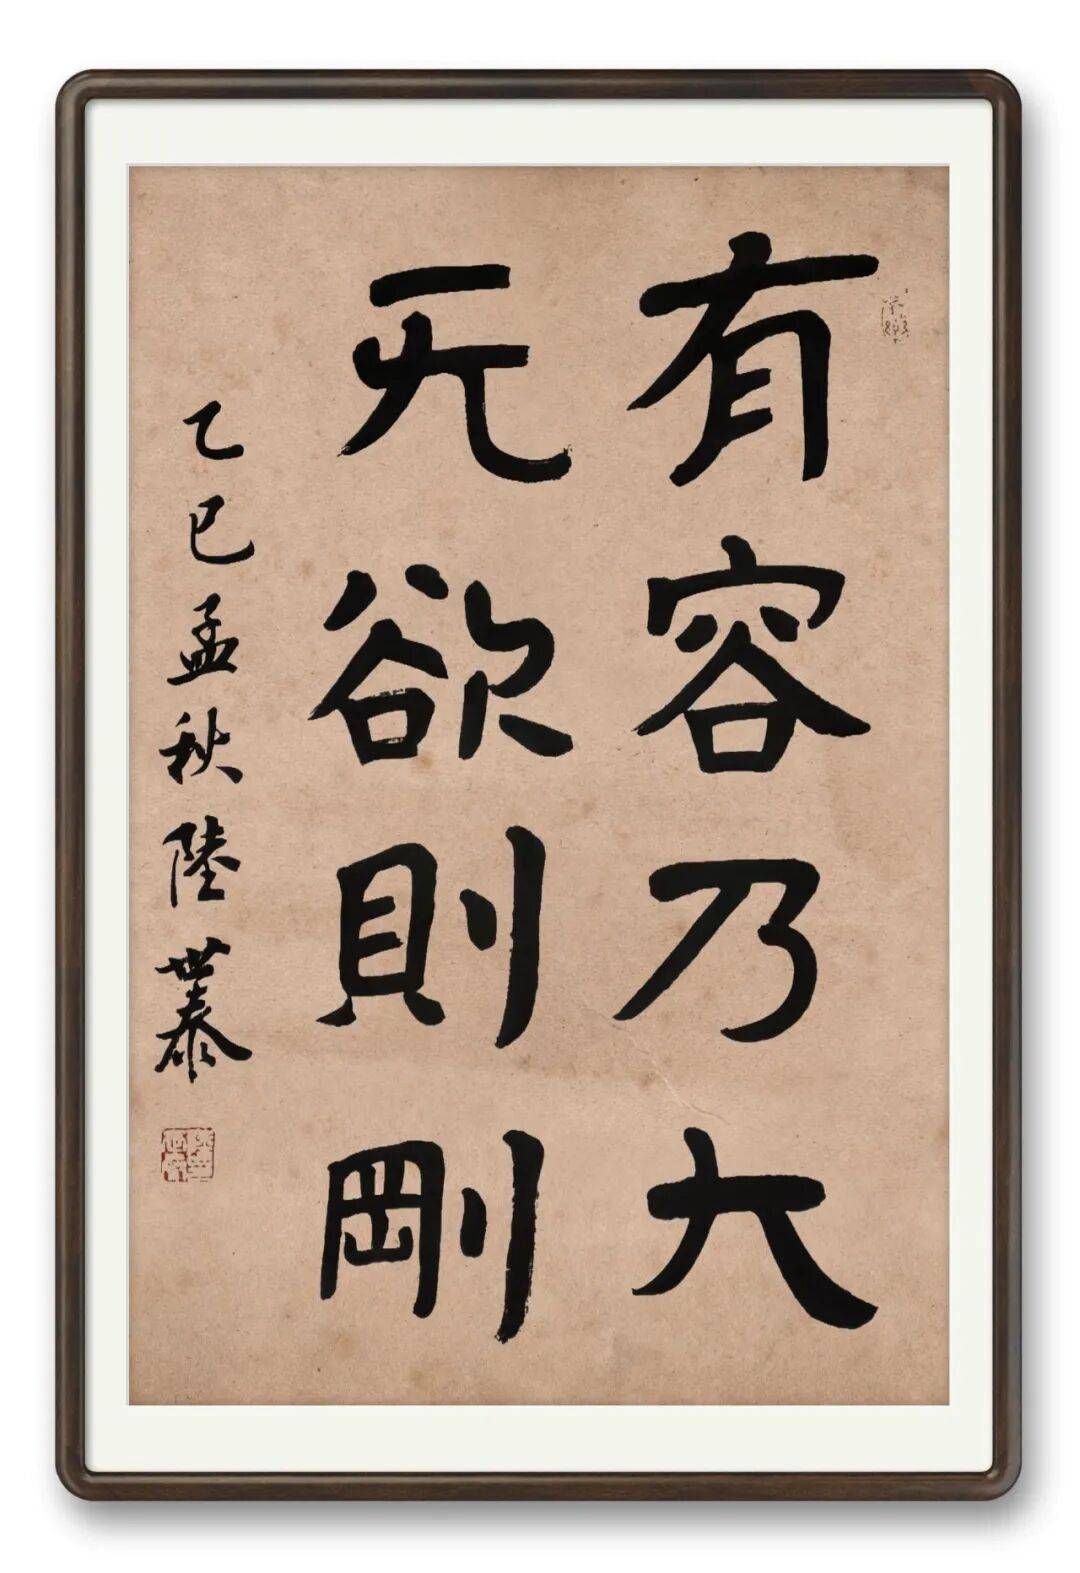 有容乃大
无欲則剛
乙巳孟秋陸世泰